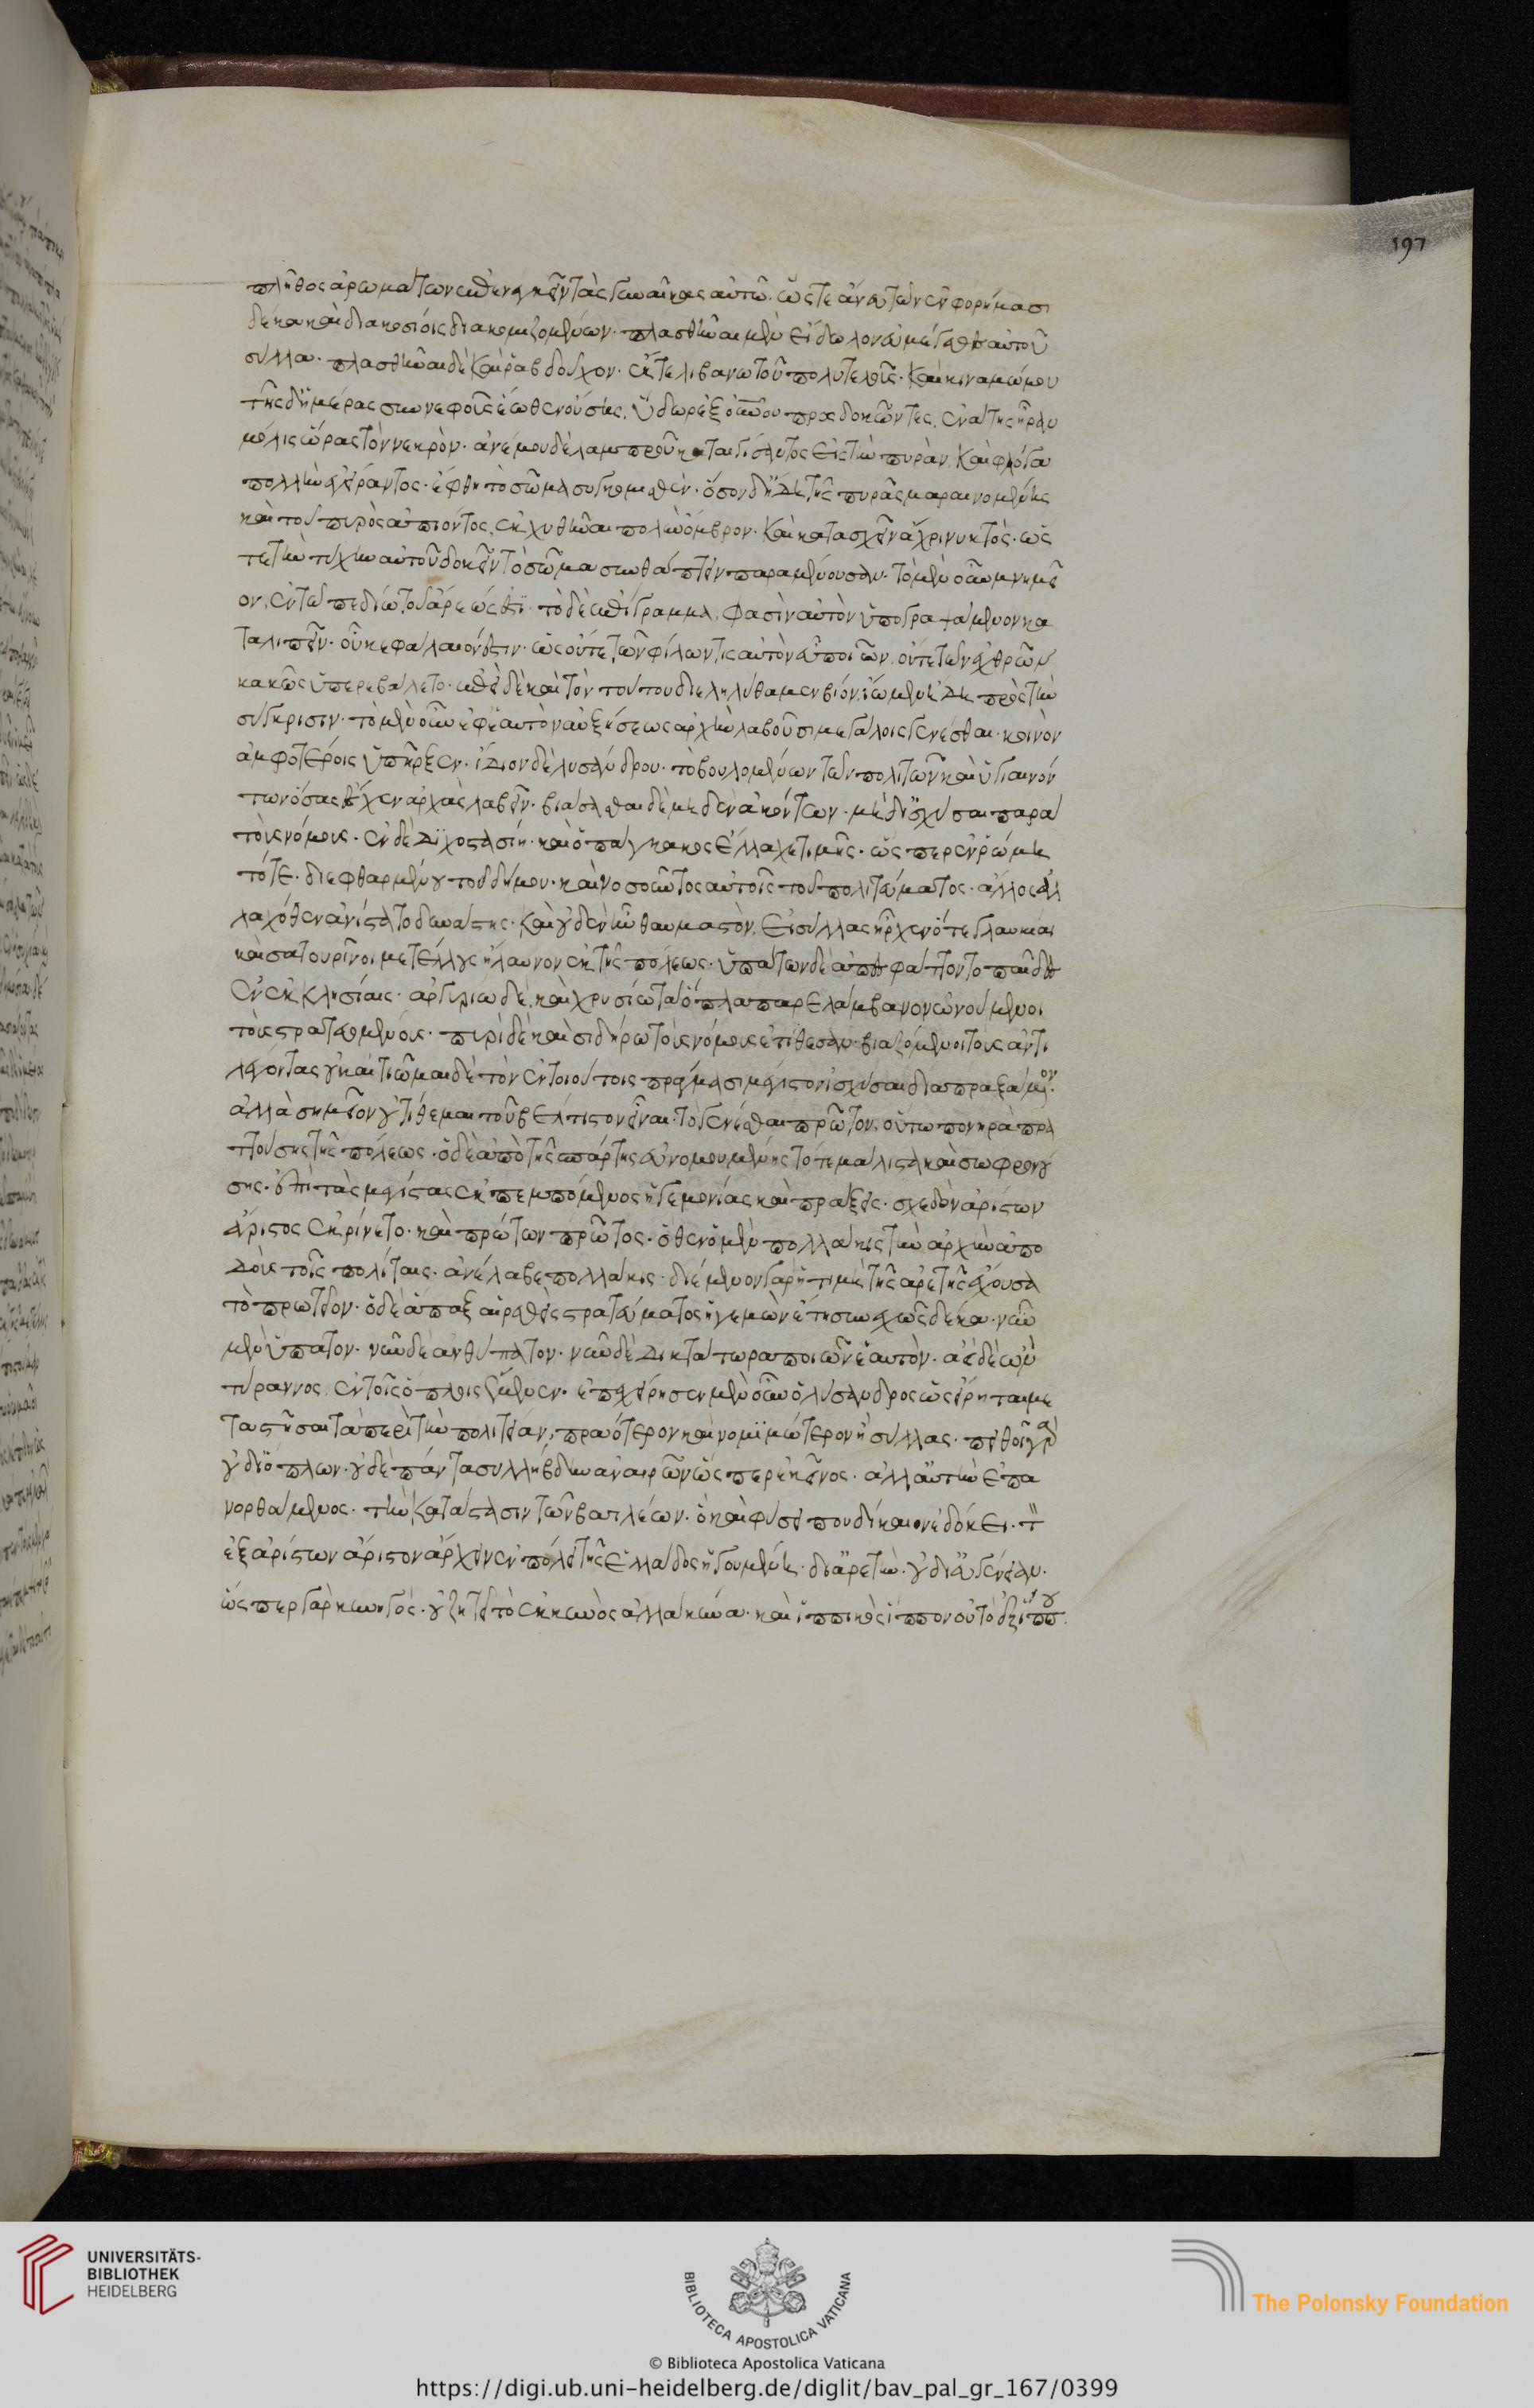 197
πλῆθος ἀρωμάτων ἐπενεγκεῖν τὰς γυναῖκας αὐτῶ. ὥστε ἄνευ τῶν ἐν φορήμασι
δέκα καὶ διακοσίοις διακομιζομένων. πλασθῆναι μὲν εἴδωλον εὐμέγεθες αὐτοῦ
σύλλα. πλασθῆναι δὲ καὶ ῥαβδοῦχον. ἔκ τε λιβανωτοῦ πολυτελοῦς. καὶ κιναμώμου
τῆς δ' ἡμέρας συννεφοῦς ἕωθεν οὔσης. ὕδωρ ἐξ οὐρανοῦ προσδοκῶντες, ἐνάτης ἦραν
μόλις ὥρας τὸν νεκρὸν. ἀνέμου δὲ λαμπροῦ καταιγίσαντος εἰς τὴν πυρὰν, καὶ φλόγα
πολλὴν ἐγείραντος. ἔφθη τὸ σῶμα συγκομισθὲν. ὅσον ἤδη τῆς πυρᾶς μαραινομένης
καὶ τοῦ πυρὸς ἀπιόντος, ἐκχυθῆναι πολὺν ὄμβρον. καὶ κατασχεῖν ἄχρι νυκτὸς. ὥς
τε τὴν τύχην αὐτοῦ δοκεῖν τὸ σῶμα συνθάπτειν παραμένουσαν. τὸ μὲν οὖν μνημεῖ
ον, ἐν τῶ πεδίω τοῦ ἄρεώς ἐστι. τὸ δὲ ἐπίγραμμα, φασὶν αὐτὸν ὑπογραψάμενον κα
ταλιπεῖν. οὗ κεφάλαιόν ἐστιν. ὡς οὔτε τῶν φίλων τὶς αὐτὸν εὖ ποιῶν. οὔτε τῶν ἐχθρῶν
κακῶς ὑπερεβάλετο. ἐπεὶ δὲ καὶ τὸν τούτου διεληλύθαμεν βίον ἴωμεν ἤδη πρὸς τὴν
σύγκρισιν. τὸ μὲν οὖν ἐφ' ἑαυτὸν αὐξήσεως ἀρχὴν λαβοῦσι μεγάλοις γενέσθαι. κοινὸν
ἀμφοτέροις ὑπῆρξεν. ἴδιον δὲ λυσάνδρου. τὸ βουλομένων τῶν πολιτῶν καὶ ὑγιαινόν
των ὅσας ἔσχεν ἀρχὰς λαβεῖν. βιάσασθαι δὲ μηδὲν ἀκόντων. μηδ' ἰσχῦσαι παρὰ
τοὺς νόμους. ἐν δὲ διχοστασίη. καὶ ὁ πάγκακος ἔλλαχε τιμῆς. ὥσπερ ἐν ῥώμη
τότε. διεφθαρμένου τοῦ δήμου. καὶ νοσοῦντος αὐτοῖς τοῦ πολιτεύματος. ἄλλος ἀλ
λαχόθεν ἀνίστατο δυνάστης. καὶ οὐδὲν ἦν θαυμαστὸν, εἰ σύλλας ἦρχεν ὅτε γλαυκίαι
καὶ σατουρνῖνοι μετέλλους ἤλαυνον ἐκ τῆς πόλεως. ὑπάτων δὲ ἀπεσφάττοντο παῖδες
ἐν ἐκκλησίαις. ἀργυρίω δὲ, καὶ χρυσίω τὰ ὅπλα παρελάμβανον ὠνούμενοι
τοὺς στρατευομένους. πυρὶ δὲ καὶ σιδήρω τοὺς νόμους ἐτίθεσαν. βιαζόμενοι τοὺς ἀντι
λέγοντας οὐκ αἰτιῶμαι δὲ τὸν ἐν τοιούτοις πράγμασι μέγιστον ἰσχῦσαι διαπραξάμενον.
ἀλλὰ σημεῖον οὐ τίθεμαι τοῦ βέλτιστον εἶναι. τὸ γενέσθαι πρῶτον, οὕτω πονηρὰ πρα
ττούσης τῆς πόλεως. ὁ δὲ ἀπὸ τῆς σπάρτης εὐνομουμένης τότε μάλιστα καὶ σωφρονού
σης. ἐπὶ τὰς μεγίστας ἐκπεμπόμενος ἡγεμονίας καὶ πράξεις. σχεδὸν ἀρίστων
ἄριστος ἐκρίνετο. καὶ πρώτων πρῶτος. ὅθεν ὁ μὲν πολλάκις τὴν ἀρχὴν ἀπο
δοὺς τοῖς πολίταις. ἀνέλαβε πολλάκις. διέμενον γὰρ ἡ τιμὴ τῆς ἀρετῆς ἔχουσα
τὸ πρωτεῖον. ὁ δὲ ἅπαξ αἱρεθεὶς στρατεύματος ἡγεμὼν ἔτη συνεχῶς δέκα. νῦν
μὲν ὕπατον. νῦν δὲ ἀνθύπατον. νῦν δὲ δικτάτωρα ποιῶν ἑαυτὸν. ἀεὶ δὲ ὢν
τύραννος. ἐν τοῖς ὅπλοις ἔμενεν. ἐπεχείρησεν μὲν οὖν ὁ λύσανδρος ὡς εἴρηται με
ταστῆσαι τὰ περὶ τὴν πολιτείαν, πραότερον καὶ νομιμώτερον ἢ σύλλας. πειθοῖ γὰρ
οὐ δι' ὅπλων. οὐδὲ πάντα συλλήβδην ἀναιρῶν ὥσπερ ἐκεῖνος. ἀλλ' αὐτὴν ἐπα
νορθούμενος. τὴν κατάστασιν τῶν βασιλέων. ὃ καὶ φύσει που δίκαιον ἐδόκει. τὸ
ἐξ ἀρίστων ἄριστον ἄρχειν ἐν πόλει τῆς ἑλλάδος ἡγουμένης. δι' ἀρετὴν. οὐ δι' εὐγένειαν.
ὥσπερ γὰρ κυνηγὸς. οὐ ζητεῖ τὸ ἐκ κυνὸς ἀλλὰ κύνα. καὶ ἱππικὸς ἵππον οὐ τὸ ἐξ ἵππου
UNIVERSITÄTS-
BIBLIOTHEK
HEIDELBERG
BIBLIOTECA APOSTOLICA VATICANA
The Polonsky Foundation
© Biblioteca Apostolica Vaticana
https://digi.ub.uni-heidelberg.de/diglit/bav_pal_gr_167/0399